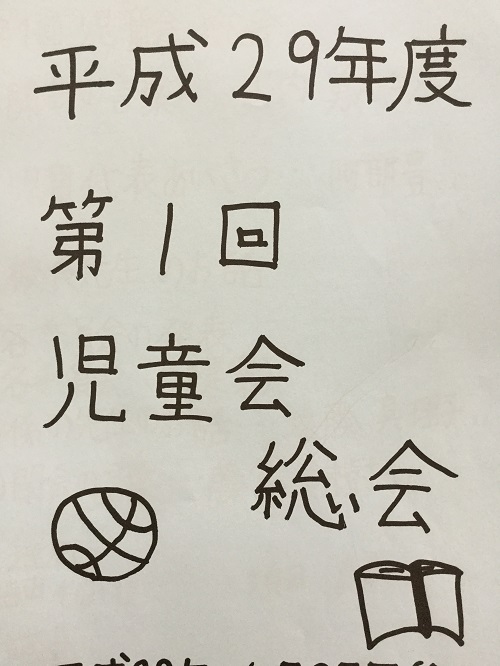 平成29年度
第1回
児童会
総会